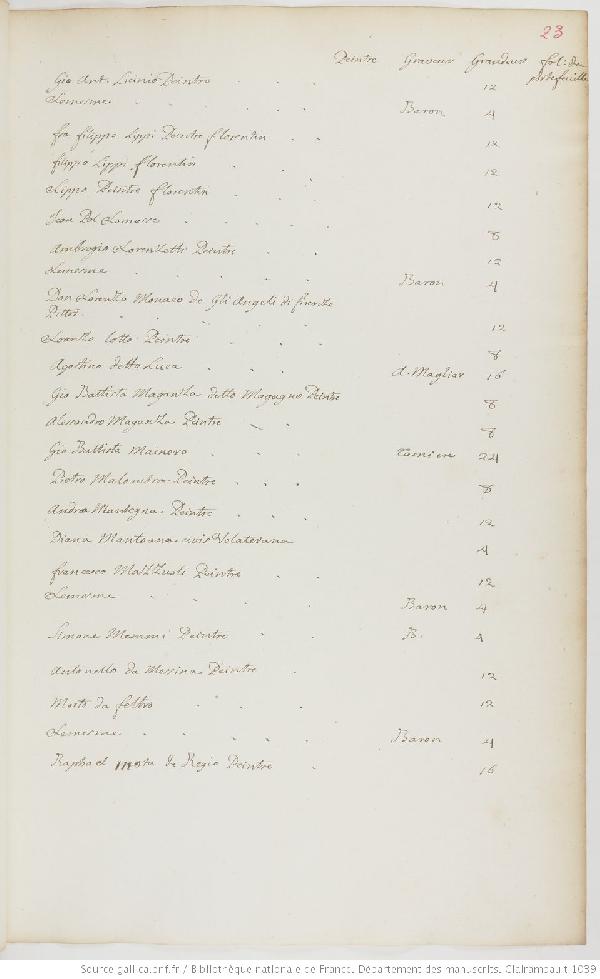 23
Peintre Graveur Grandeur fol: du portefeuille
Gio Ant. Licinio Peintre 12
Lemesme Baron 4
fra filippo Lippi Peintre florentin 12
filippo Lippi florentin 12
Lippo Peintre florentin 12
Jean Pol Lomasse 8
Ambrogio Lorenzetti Peintre 12
Lemesme Baron 4
Don Lorenzo Monaco de gli Angeli di firenze
Pittor. 12
Lorenzo lotto Peintre 8
Agostino detto Luca A. Magliar 16
Gio Battista Maganza detto Magagno Peintre 8
Alessandro Maganza Peintre 8
Gio Battista Mainero 24
Pietro Malombra Peintre 8
Andrea Mantegna Peintre 12
Diana Mantoana civis Volaterana 4
francesco Mazzuoli Peintre 12
Lemesme Baron 4
Simone Memmi Peintre B. 4
Antonello da Messina Peintre 12
Morto da feltro 12
Lemesme Baron 4
Raphael Mota de Regio Peintre 16
Source gallica.bnf.fr / Bibliothèque nationale de France. Département des manuscrits. Clairambault 1039